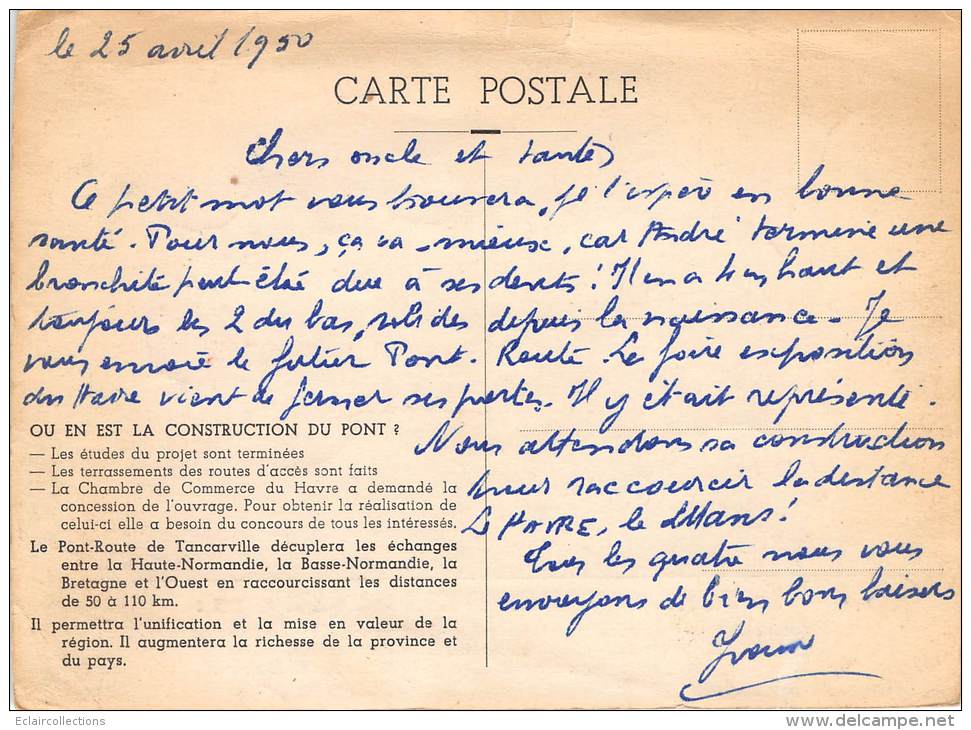 le 25 avril 1950
CARTE POSTALE
Chers oncle et tantes
Ce petit mot vous trouvera, je l'espère en bonne
santé. Pour nous, ça va mieux, car André termine une
bronchite peut-être due à ses dents! Il en a 4 en haut et
toujours les 2 du bas, solides depuis la naissance. Je
vous envoie le futur Pont. Route. La foire exposition
du Havre vient de fermer ses portes. Il y était représenté.
Nous attendons sa construction
pour raccourcir la distance
Le HAVRE, le Mans!
Tous les quatre nous vous
envoyons de bien bons baisers
OU EN EST LA CONSTRUCTION DU PONT ?
— Les études du projet sont terminées
— Les terrassements des routes d'accès sont faits
— La Chambre de Commerce du Havre a demandé la
concession de l'ouvrage. Pour obtenir la réalisation de
celui-ci elle a besoin du concours de tous les intéressés.
Le Pont-Route de Tancarville décuplera les échanges
entre la Haute-Normandie, la Basse-Normandie, la
Bretagne et l'Ouest en raccourcissant les distances
de 50 à 110 km.
Il permettra l'unification et la mise en valeur de la
région. Il augmentera la richesse de la province et
du pays.
Eclaircollections
www.delcampe.net